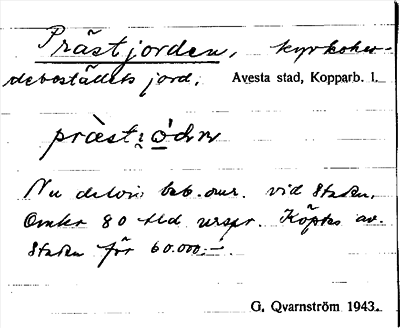 Prästjorden, kyrkoher-
debostället jord. Avesta stad, Kopparb. l.
Nu delvis beb. omr. vid staden.
Omkr 80 tld urspr. Köptes av
staden för 60.000:-.
G. Qvarnström 1943.